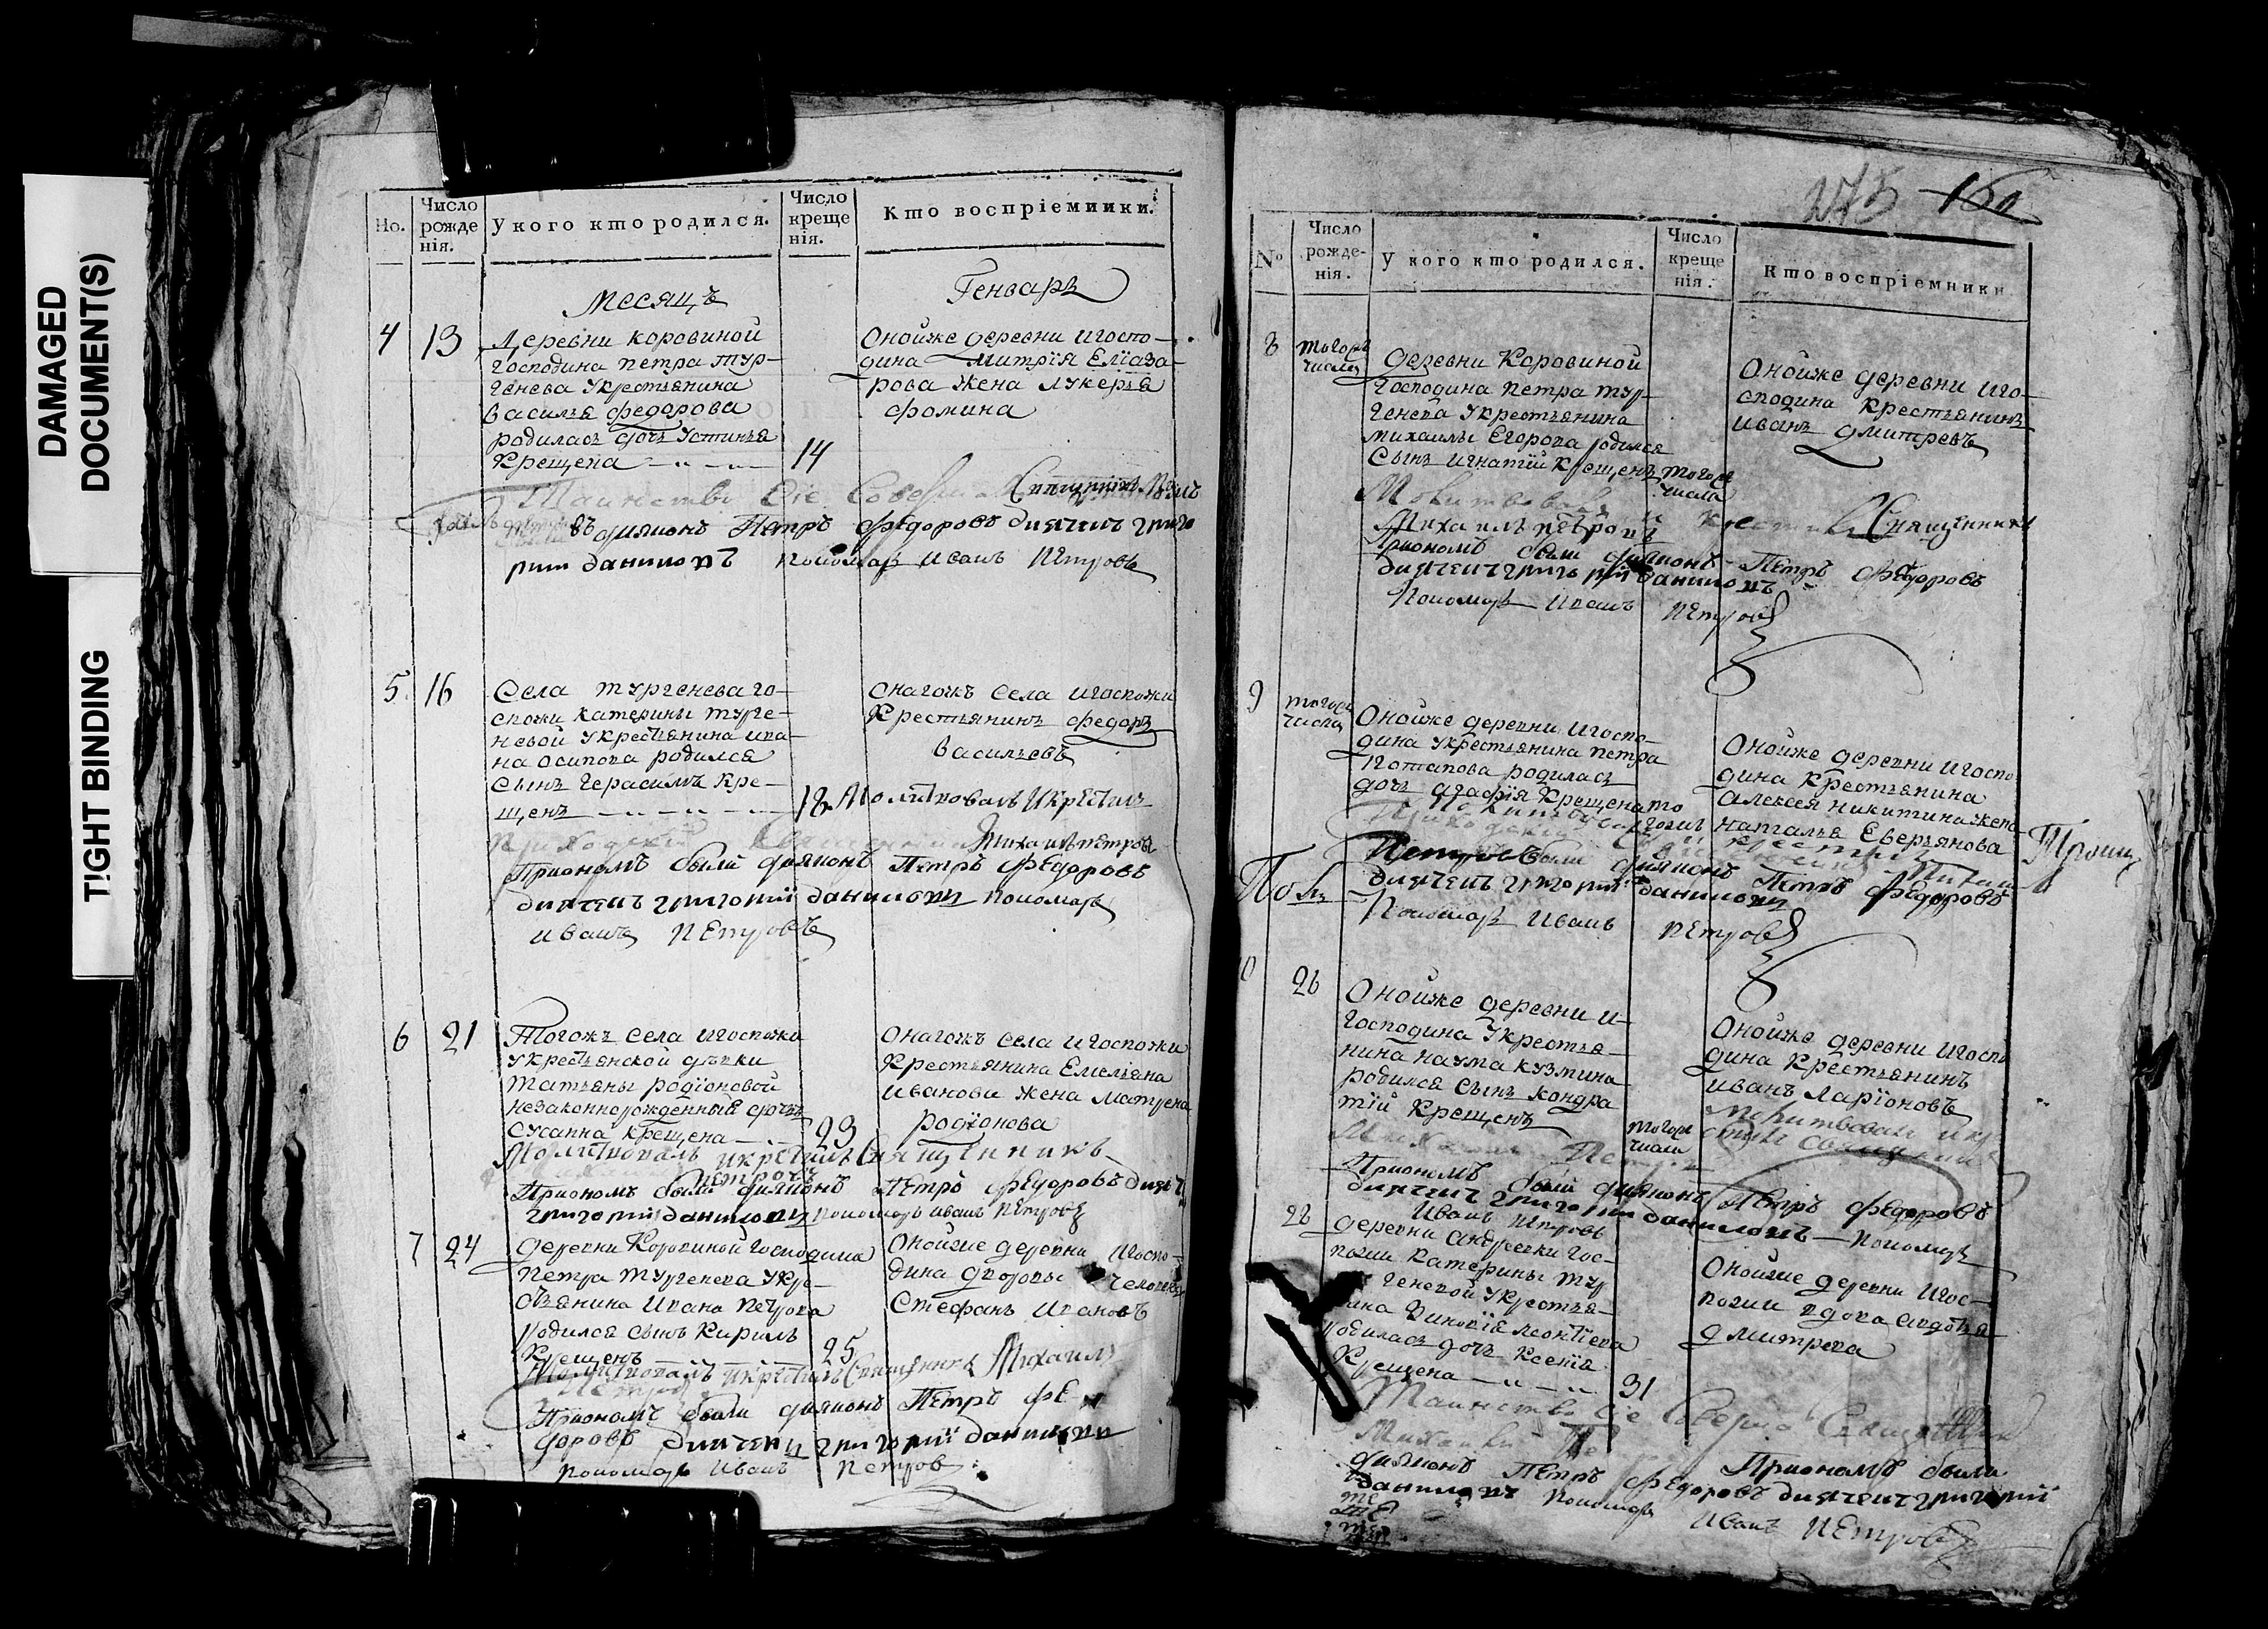 DAMAGED
DOCUMENT(S)
TIGHT BINDING
Но.
Число рожде нія.
У кого кто родился.
Число креще нія.
Кто воспріемники.
Месяцъ
Генварь
4
13
Деревни коровиной
господина петра тур-
генева укрестьянина
василья федорова
родилась дочь устинья
крещена
14
Онойже деревни игоспо-
дина митрїя Елїаза-
рова жена лукерья
фомина
Таинство сіе
дияконъ Петръ федоровъ дьячекъ григо
рии даниловъ пономарь иванъ петровъ
5
16
Села тургенева го-
спожи катерины турге-
невой укрестьянина ива-
на осипова родился
сынъ герасимъ кре-
щенъ
18
Онагожъ села игоспожи
крестьянинъ федоръ
васильевъ
Молитвовалъ икрестилъ
Приходской Михаилъ петровъ
Приономъ были дияконъ Петръ федоровъ
дьячекъ григории даниловъ пономарь
иванъ петровъ
6
21
Тогожъ села игоспожи
укрестьянской дѣвки
татьяны родїоновой
незаконнорожденный дочь
сусанна крещена
23
Онагожъ села игоспожи
крестьянина емельяна
иванова жена матрена
родїонова
Молитвовалъ икрестилъ священникъ
петровъ
Приономъ были дияконъ Петръ федоровъ дьячекъ
григории даниловъ пономарь иванъ петровъ
7
24
деревни коровиной господина
петра тургенева укре-
стьянина ивана петрова
родился сынъ кирилъ
крещенъ
25
Онойже деревни игоспо-
дина дворовы человекъ
Стефанъ ивановъ
Молитвовалъ икрестилъ священникъ Михаилъ
Петровъ
Приономъ были дияконъ Петръ фе
доровъ дьячекъ григории даниловъ
пономарь иванъ петровъ
275 160
№
Число рожде- нія.
У кого кто родился.
Число креще нія.
Кто воспріемники
8
тогожъ числа
деревни Коровиной
господина петра тур-
генева укрестьянина
михаилы егорова родился
сынъ игнатїй крещенъ
тогожъ числа
Онойже деревни иго-
сподина крестьянинъ
иванъ дмитревъ
Молитвовалъ и крестилъ священникъ
Михаилъ петровъ
Приономъ были дияконъ Петръ федоровъ
дьячекъ григории даниловъ
Пономарь иванъ петровъ
9
тогожъ числа
Онойже деревни игоспо-
дина укрестьянина петра
потапова родилась
дочь агафїя крещена то
гожъ
Онойже деревни игоспо
дина крестьянина
алексея никитина жена
наталья Еверьянова
Петровъ
были дияконъ Петръ федоровъ
дьячекъ григории даниловъ
Пономарь иванъ петровъ
10
26
Онойже деревни и-
господина укрестья-
нина наума кузмина
родился сынъ кондра
тїй крещенъ
тогожъ числа
Онойже деревни игоспо
дина крестьянинъ
иванъ ларїоновъ
Молитвовалъ икре
стилъ священникъ
Михаилъ Петровъ
Приономъ были дияконъ Петръ федоровъ
дьячекъ григории даниловъ пономарь
иванъ петровъ
28
деревни андреевки гос-
пожи катерины тур
геневой укрестья-
нина зиновїя леонтїева
родилась дочь ксенїя
крещена
31
Онойже деревни игос-
пожи вдова авдотья
дмитрева
Таинство сіе совершалъ священникъ
Михаилъ
Приономъ были
дияконъ Петръ федоровъ дьячекъ григории
даниловъ пономарь иванъ петровъ